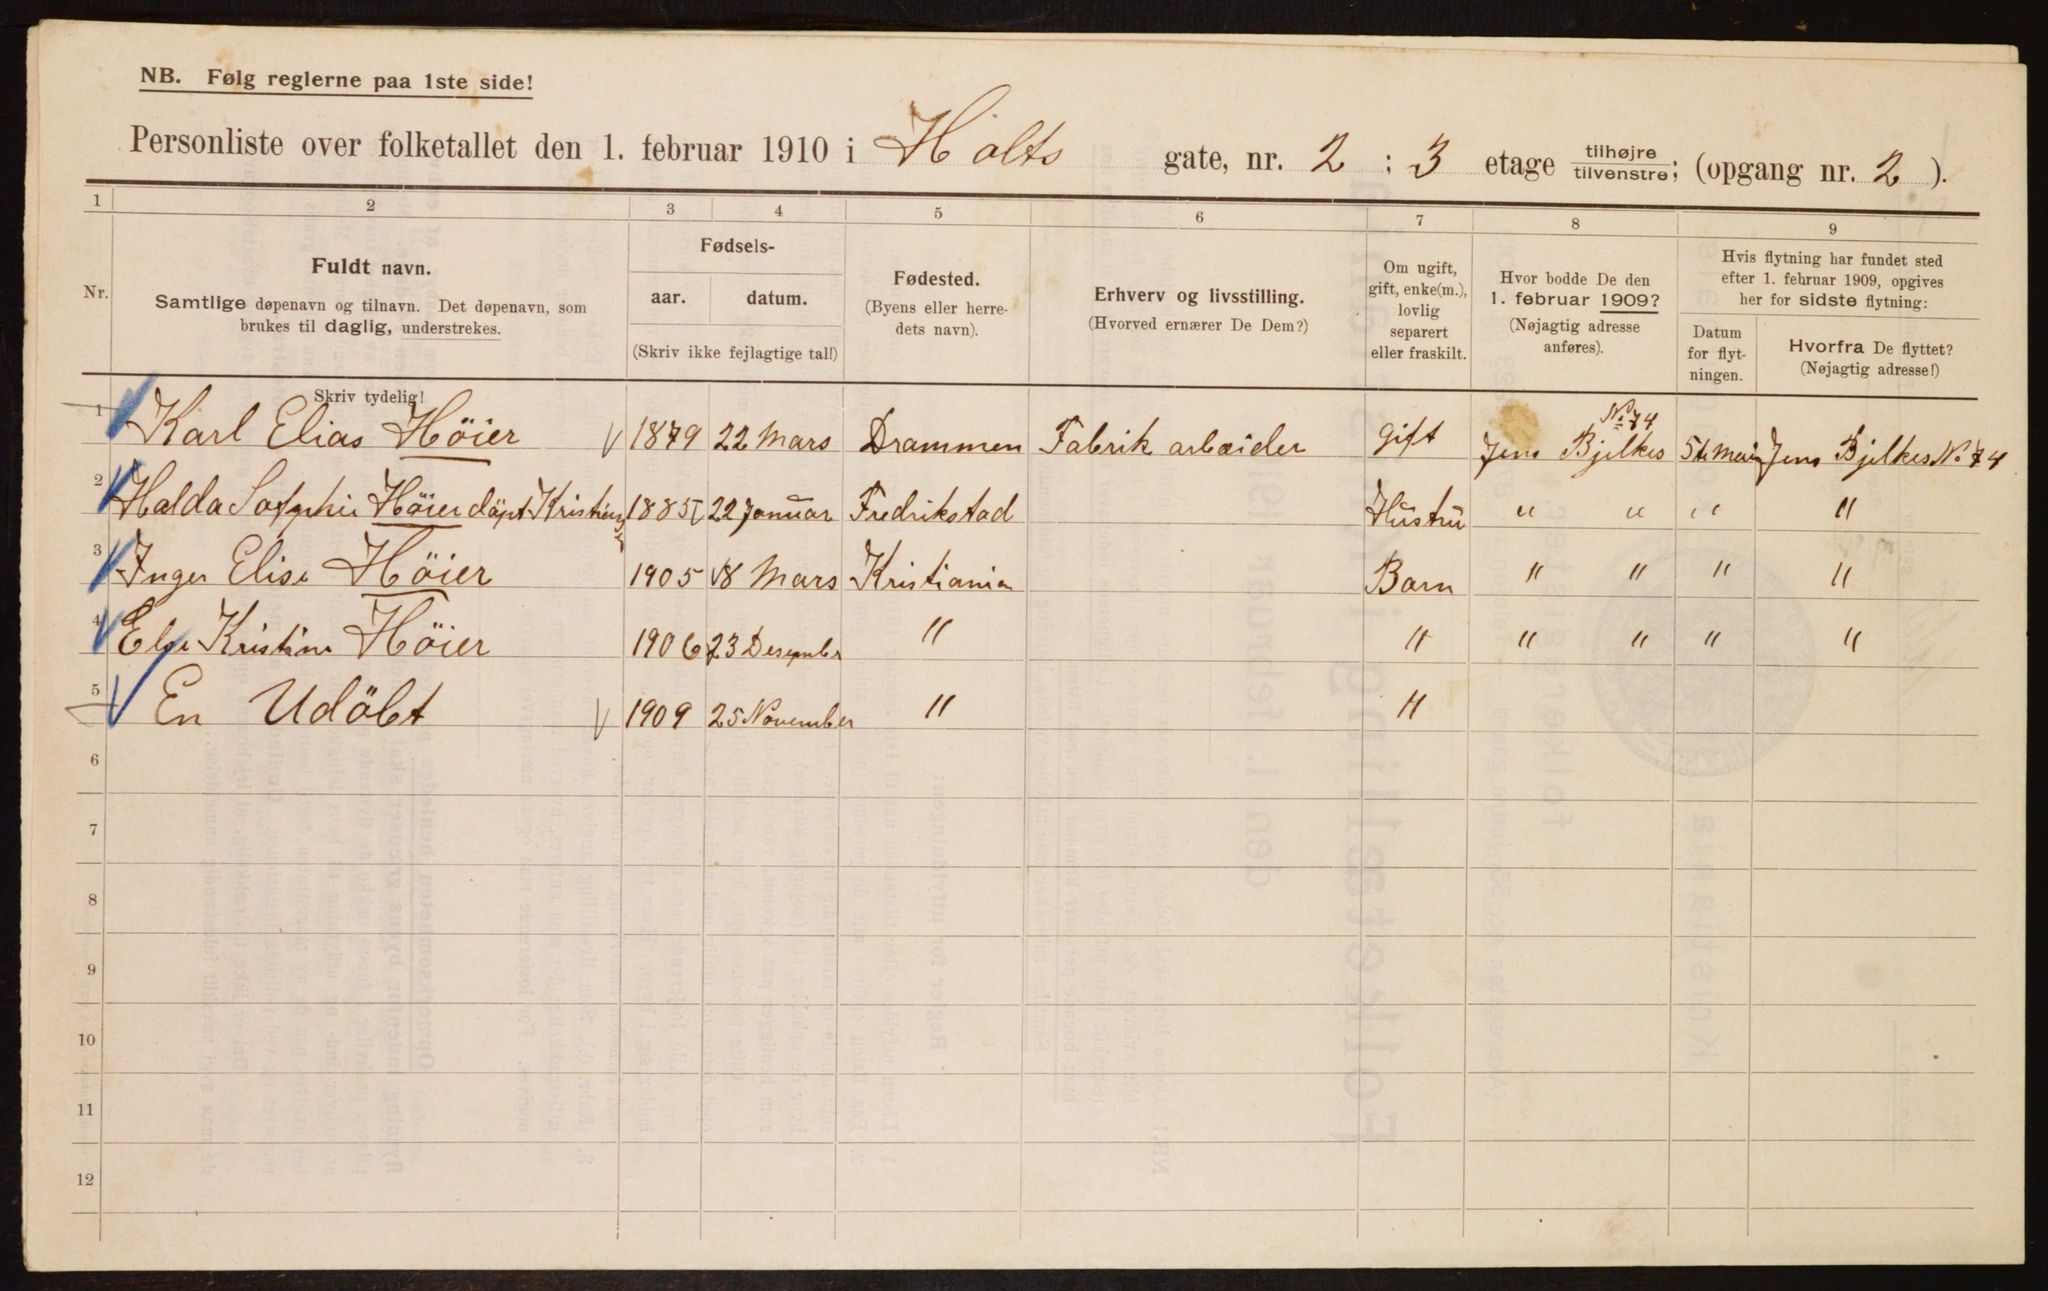 NB. Følg reglerne paa 1ste side!
Personliste over folketallet den 1. februar 1910 i Holts gate, nr. 2 ; 3 etage tilhøjre tilvenstre; (opgang nr. 2 ).
1 2 3 4 5 6 7 8 9
Nr.
Fuldt navn.
Samtlige døpenavn og tilnavn. Det døpenavn, som
brukes til daglig, understrekes.
Fødsels-
aar. datum.
(Skriv ikke fejlagtige tal!)
Fødested.
(Byens eller herre-
dets navn).
Erhverv og livsstilling.
(Hvorved ernærer De Dem?)
Om ugift,
gift, enke(m.),
lovlig
separert
eller fraskilt.
Hvor bodde De den
1. februar 1909?
(Nøjagtig adresse
anføres).
Hvis flytning har fundet sted
efter 1. februar 1909, opgives
her for sidste flytning:
Datum
for flyt-
ningen.
Hvorfra De flyttet?
(Nøjagtig adresse!)
Skriv tydelig!
1 Karl Elias Höier 1879 22 Mars Drammen Fabrik arbæider gift Jens Bjelkes No 74 5te Mai Jens Bjelkes No 74
2 Halda Sofphie Höier döpt 1885 22 Januar Fredrikstad Hustru " " " "
3 Inger Elise Höier 1905 18 Mars Kristiania Barn " " " "
4 Else Kristine Höier 1906 23 Desember " " " " " "
5 En Udöbt 1909 25 November " "
6
7
8
9
10
11
12